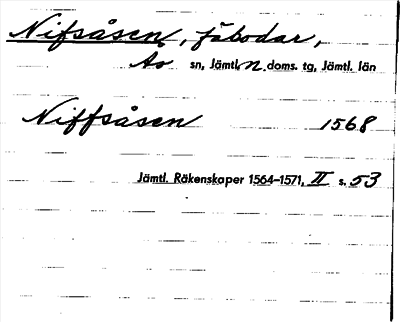 Nifsåsen, fäbodar,
Ås sn, Jämtl. n. doms. tg, Jämtl. län
Niffsåsen 1568
Jämtl. Räkenskaper 1564-1571, II s. 53